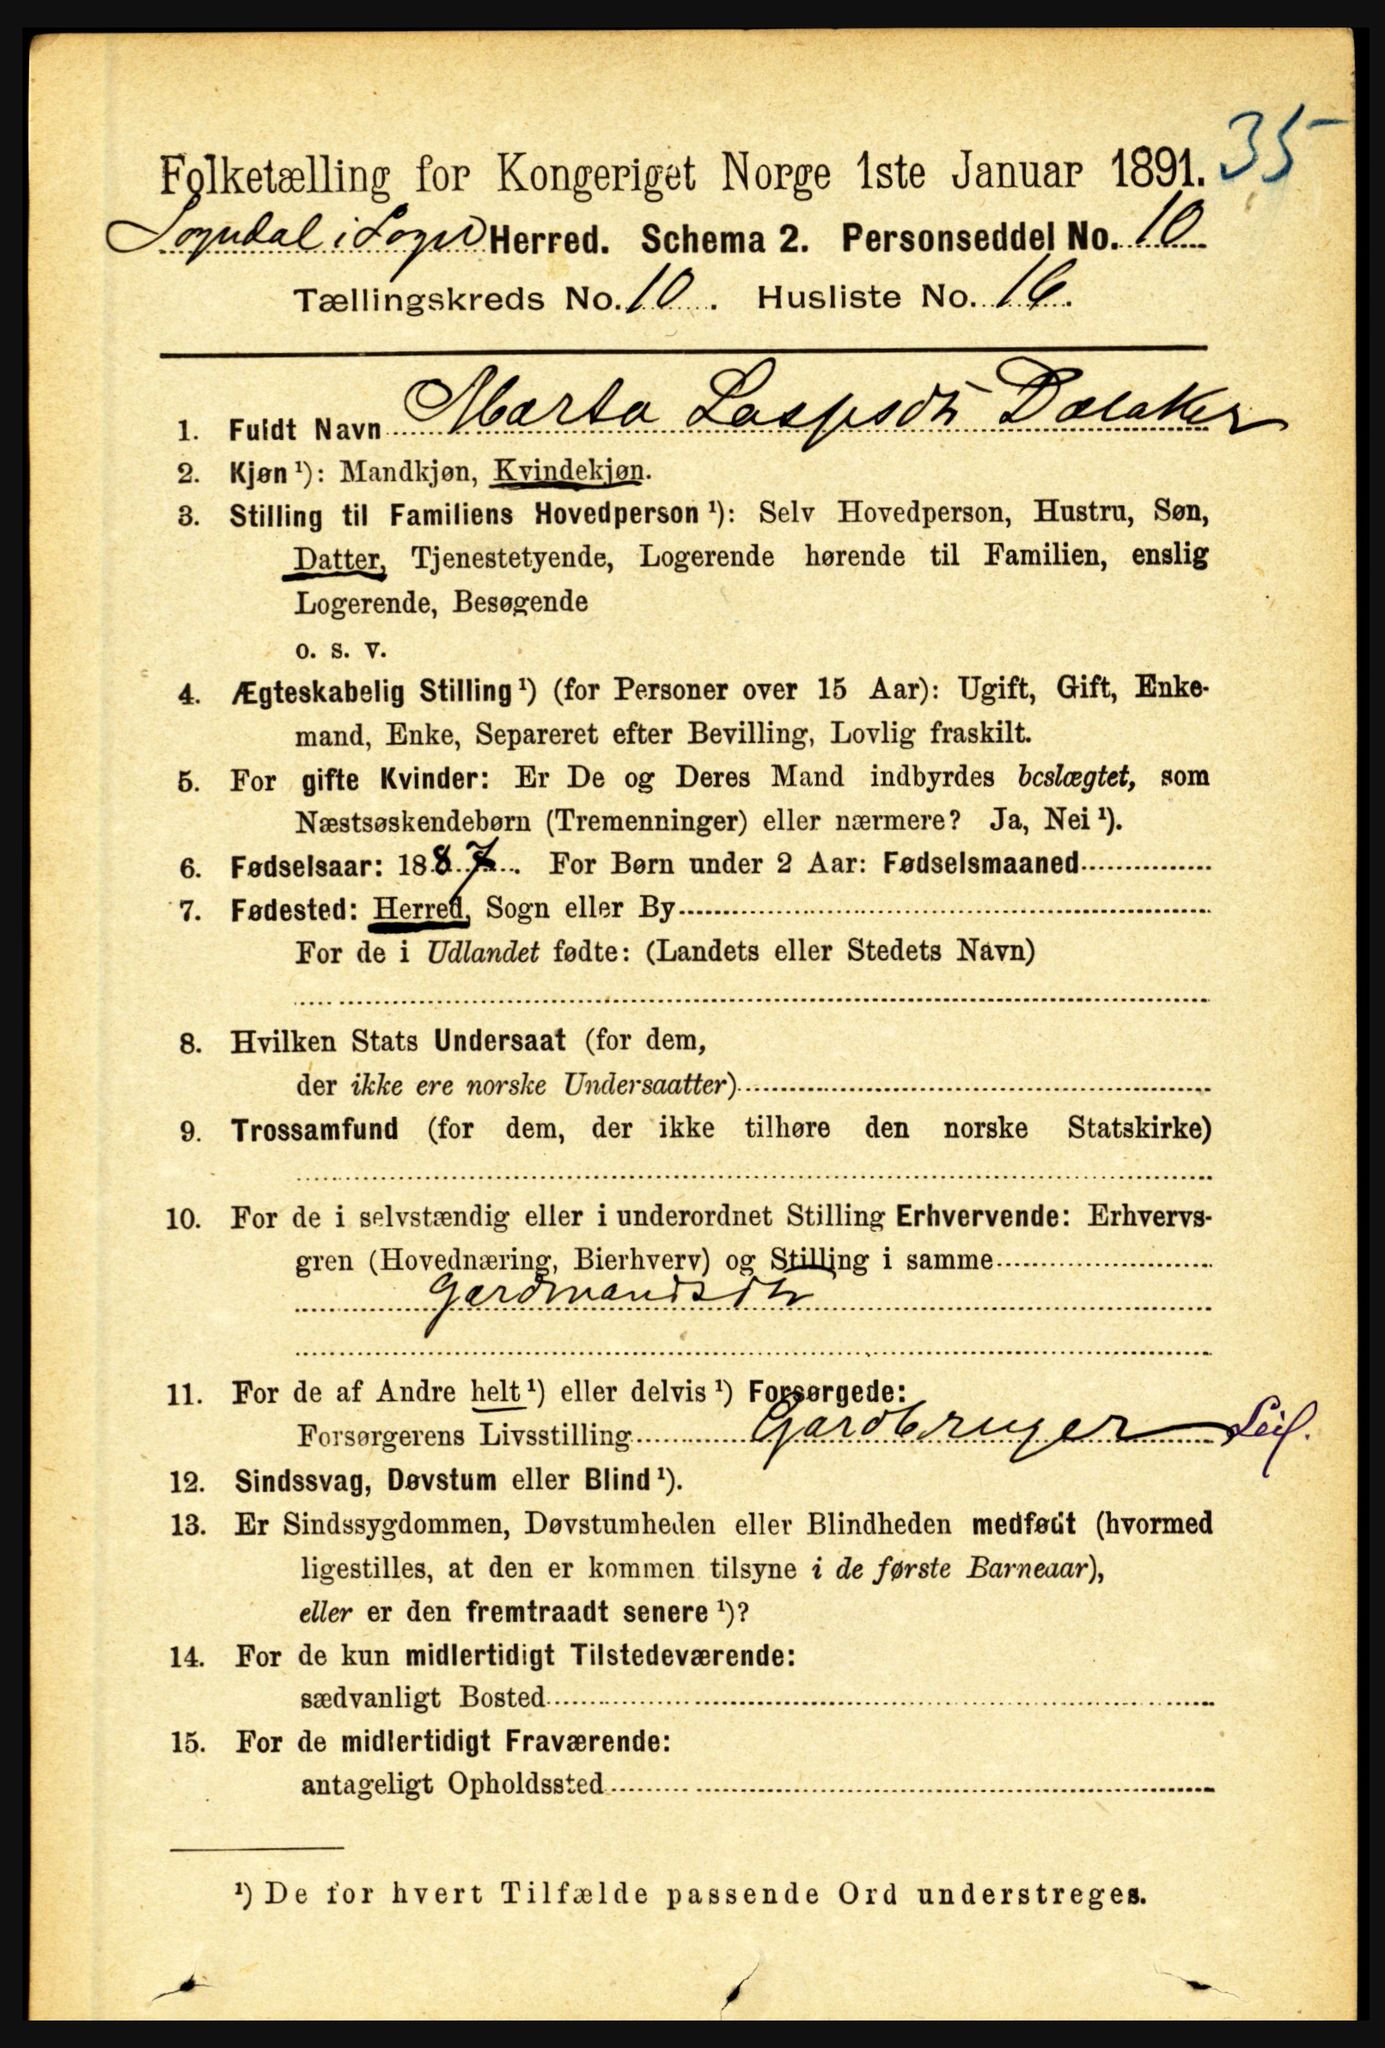 35
Folketælling for Kongeriget Norge 1ste Januar 1891.
Sogndal i Sogn Herred. Schema 2. Personseddel No. 10
Tællingskreds No. 10. Husliste No. 16.
1. Fuldt Navn Marta Laspsdtr Dalaker
2. Kjøn ¹): Mandkjøn, Kvindekjøn.
3. Stilling til Familiens Hovedperson ¹): Selv Hovedperson, Hustru, Søn,
Datter, Tjenestetyende, Logerende hørende til Familien, enslig
Logerende, Besøgende
o. s. v.
4. Ægteskabelig Stilling ¹) (for Personer over 15 Aar): Ugift, Gift, Enke-
mand, Enke, Separeret efter Bevilling, Lovlig fraskilt.
5. For gifte Kvinder: Er De og Deres Mand indbyrdes beslægtet, som
Næstsøskendebørn (Tremenninger) eller nærmere? Ja, Nei ¹).
6. Fødselsaar: 1887. For Børn under 2 Aar: Fødselsmaaned
7. Fødested: Herred, Sogn eller By
For de i Udlandet fødte: (Landets eller Stedets Navn)
8. Hvilken Stats Undersaat (for dem,
der ikke ere norske Undersaatter)
9. Trossamfund (for dem, der ikke tilhøre den norske Statskirke)
10. For de i selvstændig eller i underordnet Stilling Erhvervende: Erhvervs-
gren (Hovednæring, Bierhverv) og Stilling i samme
Gardmandsdtr
11. For de af Andre helt ¹) eller delvis ¹) Forsørgede:
Forsørgerens Livsstilling Gardbruger
12. Sindssvag, Døvstum eller Blind ¹).
13. Er Sindssygdommen, Døvstumheden eller Blindheden medfødt (hvormed
ligestilles, at den er kommen tilsyne i de første Barneaar),
eller er den fremtraadt senere ¹)?
14. For de kun midlertidigt Tilstedeværende:
sædvanligt Bosted
15. For de midlertidigt Fraværende:
antageligt Opholdssted
¹) De for hvert Tilfælde passende Ord understreges.